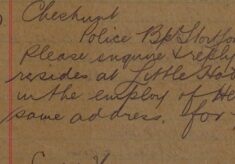 Cheshunt
Police Bp Stortfor
Please inquire & reply
resides at Little Ha
in the employ of He
same address. for